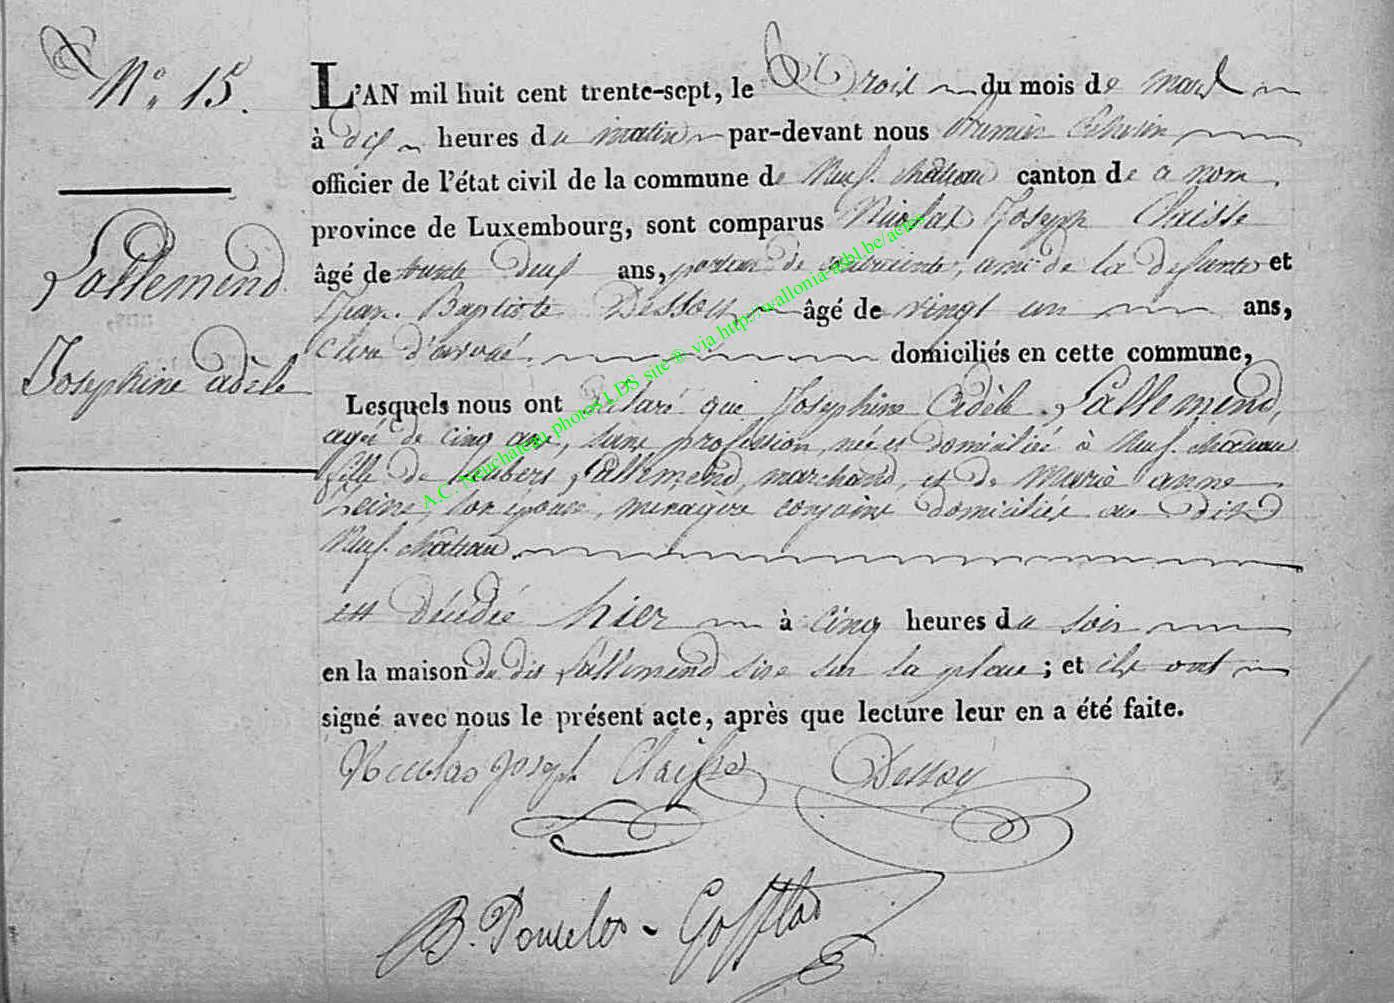 N.° 15.
L'AN mil huit cent trente-sept, le Trois du mois de mars
à dix heures du matin par-devant nous
officier de l'état civil de la commune de Neuf-château canton de ce nom,
province de Luxembourg, sont comparus Nicolas Joseph Claisse
âgé de trente deux ans, ami de la defunte et
Jean Baptiste Dessoy âgé de vingt un ans,
clerc d'avoué. domiciliés en cette commune,
Lesquels nous ont déclaré que Josephine Adèle Lallemend,
agée de cinq ans, sans profession, née et domiciliée à Neuf-château
fille de Hubert Lallemend, marchand et de Marie anne
son épouse, ménagère conjoints domiciliés au dit
Neuf-château.
est décédée hier à cinq heures du soir
en la maison du dit Lallemend sise sur la place ; et ils ont
signé avec nous le présent acte, après que lecture leur en a été faite.
Lallemend
Josephine adèle
Nicolas joseph Claisse Dessoy
B.
A.C. Neufchâteau photos LDS site ® via http://wallonia-asbl.be/actes